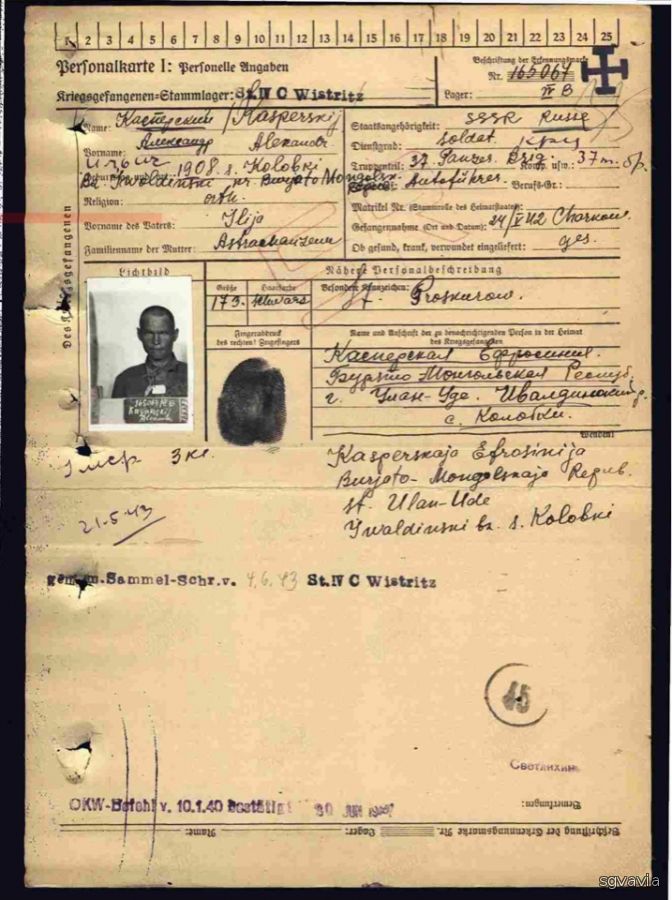 1 2 3 4 5 6 7 8 9 10 11 12 13 14 15 16 17 18 19 20 21 22 23 24 25
Personalkarte I: Personelle Angaben
Kriegsgefangenen-Stammlager: St. IV C Wistritz
Beschriftung der Erkennungsmarke
Nr. 165067
Lager: IV B
Des Kriegsgefangenen
Name: Касперский / Kasperskij
Александр Alexander
Vorname:
1908. s. Kolobki
Burjato Mongolsk.
Religion: orth.
Vorname des Vaters: Ilija
Familienname der Mutter: Astrachanzewa
Staatsangehörigkeit: SSSR Russe
Dienstgrad: Soldat
Truppenteil: 37. Panzer Brig. Komp. usw.: 37
Autoführer Berufs-Gr.:
Matrikel Nr. (Stammrolle des Heimatstaates):
Gefangennahme (Ort und Datum): 24/V 42 Charkow
Ob gesund, krank, verwundet eingeliefert: ges.
Lichtbild
Größe Haarfarbe
173. schwarz
Fingerabdruck
des rechten! Zeigefingers
Nähere Personalbeschreibung
Besondere Kennzeichen:
st. Proskurow.
Name und Anschrift der zu benachrichtigenden Person in der Heimat
des Kriegsgefangenen
Касперская Ефросиния.
Бурято Монгольская Респуб.
г. Улан-Уде. Ивалдинский р.
с. Колобки.
Wenden!
Kasperskaja Efrosinija
Burjato-Mongolskaja Repub.
st. Ulan-Ude
Iwaldinski bz. s. Kolobki
Умер 3 кл.
21-5-43
gem. Sammel-Schr. v. 4.6.43 St. IV C Wistritz
45
Светлихин
OKW-Befehl v. 10.1.40 bestätigt
Bemerkungen:
Beschriftung der Erkennungsmarke Nr. Lager: Name:
sgvavia